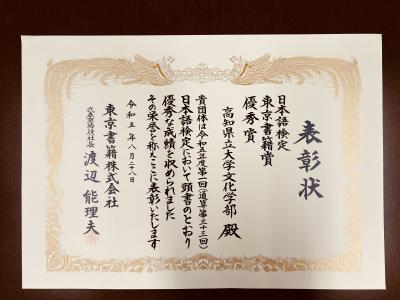 表彰状
日本語検定
東京書籍賞
優秀賞
高知県立大学文化学部 殿
貴団体は令和五年度第一回(通算第三十三回)
日本語検定において頭書のとおり
優秀な成績を収められました
その栄誉を称えここに表彰いたします
令和五年八月二十八日
東京書籍株式会社
代表取締役社長 渡辺能理夫